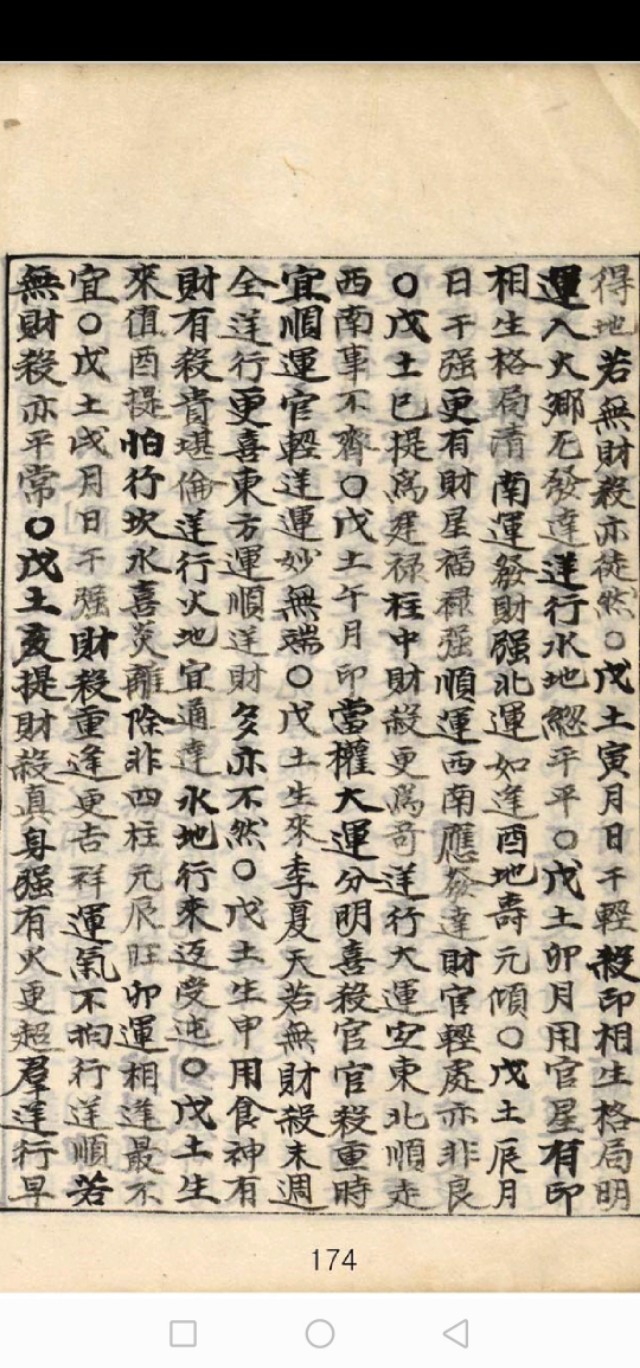 得地若無財殺亦徒然○戊土寅月日干輕殺印相生格局明
運入火鄉无發達逆行水地總平平○戊土卯月用官星有印
相生格局清南運發財强北運如逢酉地壽元傾○戊土辰月
日干强更有財星福祿强順運西南應發達財官輕處亦非良
○戊土巳提爲建禄柱中財殺更爲奇逆行大運宜東北順走
西南事不齊○戊土午月印當權大運分明喜殺官官殺重時
宜順運官輕逆運妙無端○戊土生來季夏天若無財殺未週
全逆行更喜東方運順逆財多亦不然○戊土生申用食神有
財有殺貴堪倫逆行火地宜通達水地行來返受迍○戊土生
來值酉提怕行坎水喜炎離除非四柱元辰旺卯運相逢最不
宜○戊土戌月日干强財殺重逢更吉祥運氣不拘行逆順若
無財殺亦平常○戊土亥提財殺真身强有火更超羣逆行早
174